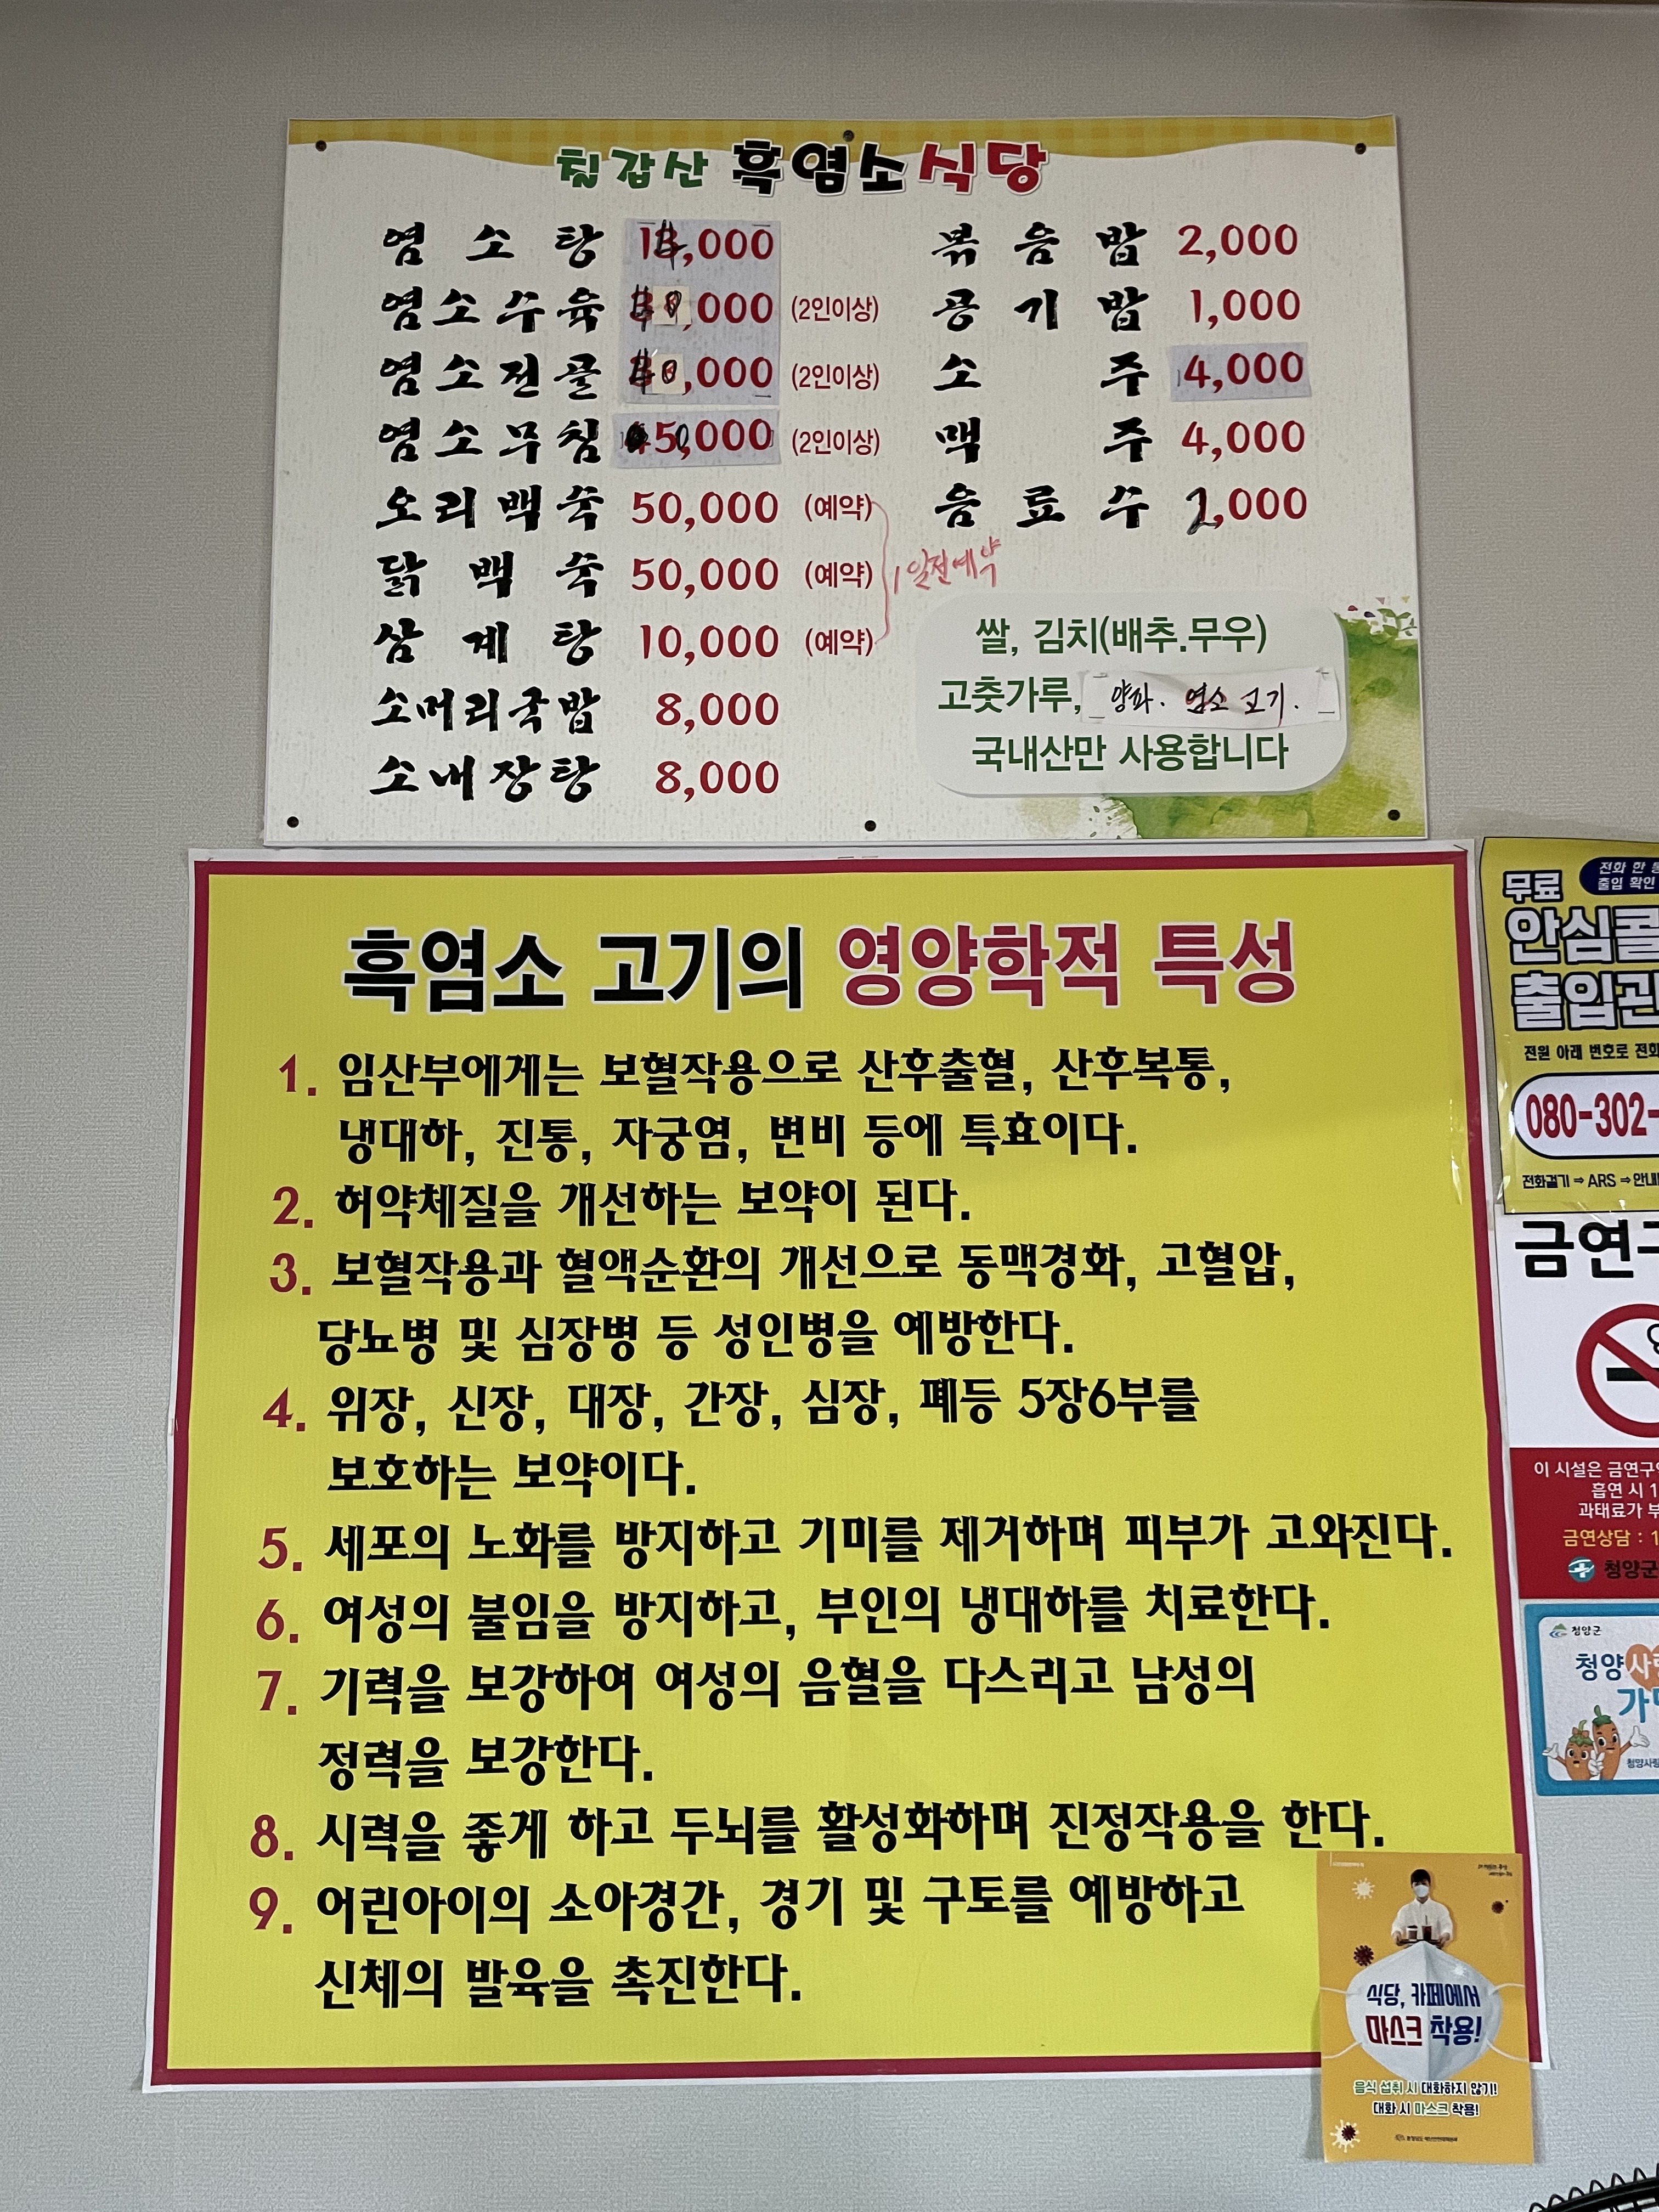 칠갑산 흑염소식당
염소탕 14,000
염소수육 (2인이상)
염소전골 (2인이상)
염소무침 (2인이상)
오리백숙 50,000 (예약)
닭백숙 50,000 (예약)
삼계탕 10,000 (예약)
1일전예약
소머리국밥 8,000
소내장탕 8,000
볶음밥 2,000
공기밥 1,000
소주 4,000
맥주 4,000
음료수 2,000
쌀, 김치(배추.무우)
고춧가루, 양파. 염소 고기.
국내산만 사용합니다
흑염소 고기의 영양학적 특성
1. 임산부에게는 보혈작용으로 산후출혈, 산후복통,
냉대하, 진통, 자궁염, 변비 등에 특효이다.
2. 허약체질을 개선하는 보약이 된다.
3. 보혈작용과 혈액순환의 개선으로 동맥경화, 고혈압,
당뇨병 및 심장병 등 성인병을 예방한다.
4. 위장, 신장, 대장, 간장, 심장, 폐등 5장6부를
보호하는 보약이다.
5. 세포의 노화를 방지하고 기미를 제거하며 피부가 고와진다.
6. 여성의 불임을 방지하고, 부인의 냉대하를 치료한다.
7. 기력을 보강하여 여성의 음혈을 다스리고 남성의
정력을 보강한다.
8. 시력을 좋게 하고 두뇌를 활성화하며 진정작용을 한다.
9. 어린아이의 소아경간, 경기 및 구토를 예방하고
신체의 발육을 촉진한다.
무료
전화 한
출입 확인
안심콜
출입관
전원 아래 번호로 전화
080-302-
전화걸기 ⇒ ARS ⇒ 안내
금연구
이 시설은 금연구역
흡연 시 1
과태료가 부
금연상담 : 1
청양군
청양군
청양사랑
가맹
청양사랑
식당, 카페에서
마스크 착용!
음식 섭취 시 대화하지 않기!
대화 시 마스크 착용!